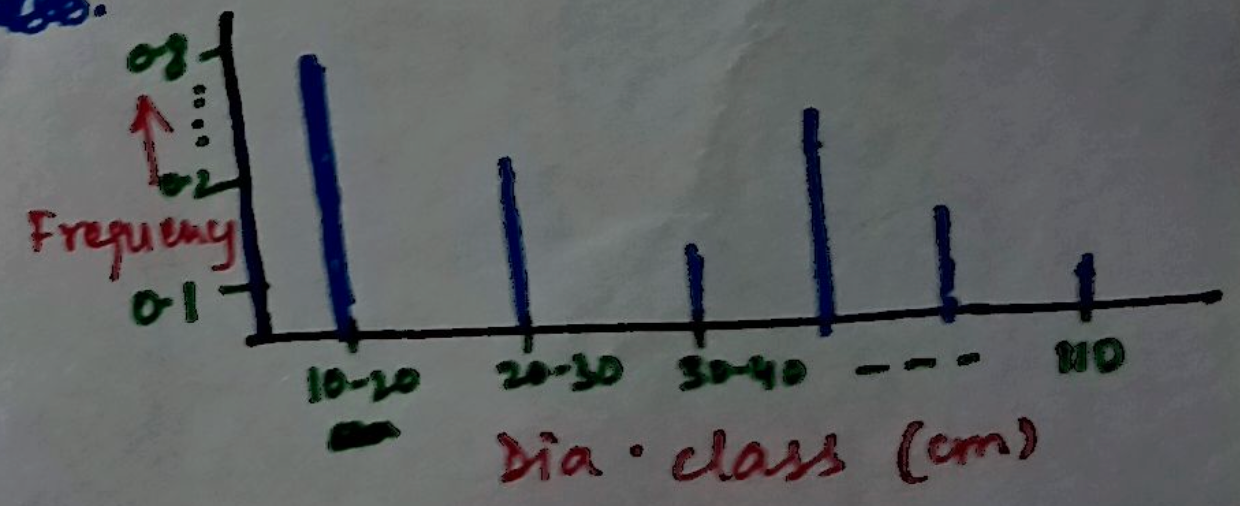 0.8
0.2
Frequency
0.1
10-20 20-30 30-40 --- 110
Dia. class (cm)